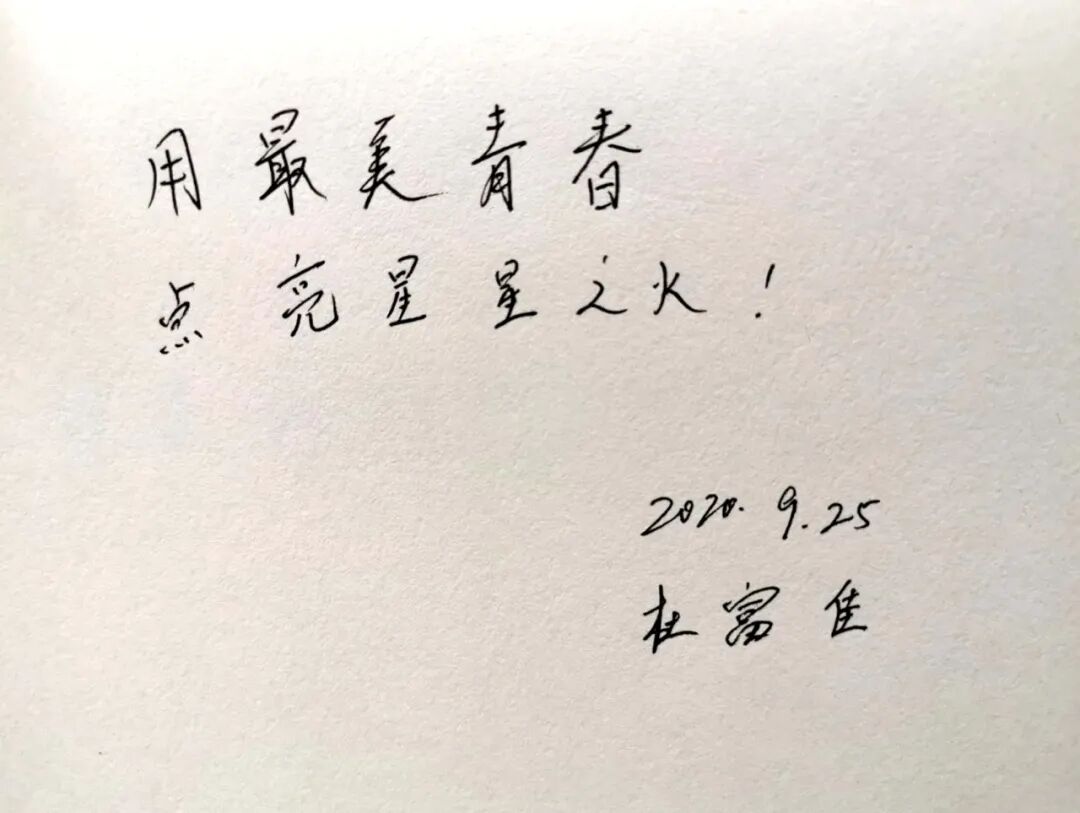 用最美青春
点亮星星之火!
2020.9.25
杜富佳